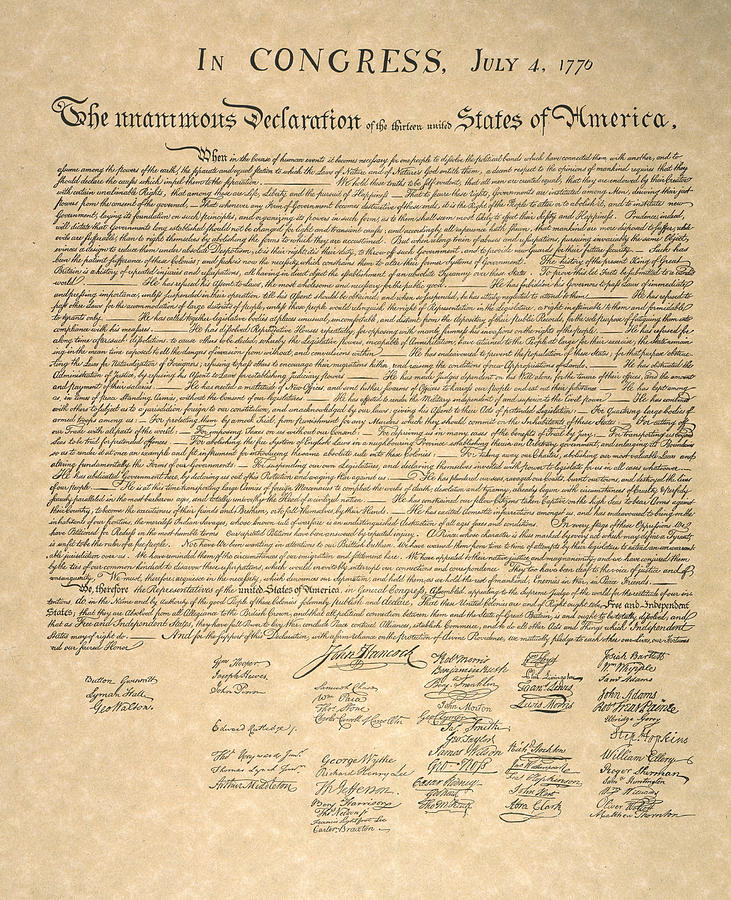 IN CONGRESS, JULY 4, 1776
The unanimous Declaration of the thirteen united States of America,
When in the Course of human events it becomes necessary for one people to dissolve the political bands which have connected them with another, and to
assume among the powers of the earth, the separate and equal station to which the Laws of Nature and of Nature's God entitle them, a decent respect to the opinions of mankind requires that they
should declare the causes which impel them to the separation. — We hold these truths to be self-evident, that all men are created equal, that they are endowed by their Creator
with certain unalienable Rights, that among these are Life, Liberty and the pursuit of Happiness. — That to secure these rights, Governments are instituted among Men, deriving their just
powers from the consent of the governed, — That whenever any Form of Government becomes destructive of these ends, it is the Right of the People to alter or to abolish it, and to institute new
Government, laying its foundation on such principles, and organizing its powers in such form, as to them shall seem most likely to effect their Safety and Happiness. Prudence, indeed,
will dictate that Governments long established should not be changed for light and transient causes; and accordingly all experience hath shewn, that mankind are more disposed to suffer, while
evils are sufferable, than to right themselves by abolishing the forms to which they are accustomed. But when a long train of abuses and usurpations, pursuing invariably the same Object,
evinces a design to reduce them under absolute Despotism, it is their right, it is their duty, to throw off such Government, and to provide new Guards for their future security. — Such has
been the patient sufferance of these Colonies; and such is now the necessity which constrains them to alter their former Systems of Government. The history of the present King of Great
Britain is a history of repeated injuries and usurpations, all having in direct object the establishment of an absolute Tyranny over these States. To prove this, let Facts be submitted to a candid
world. — He has refused his Assent to Laws, the most wholesome and necessary for the public good. — He has forbidden his Governors to pass Laws of immediate
and pressing importance, unless suspended in their operation till his Assent should be obtained; and when so suspended, he has utterly neglected to attend to them. — He has refused to
pass other Laws for the accommodation of large districts of people, unless those people would relinquish the right of Representation in the Legislature, a right inestimable to them and formidable
to tyrants only. — He has called together legislative bodies at places unusual, uncomfortable, and distant from the depository of their Public Records, for the sole purpose of fatiguing them into
compliance with his measures. — He has dissolved Representative Houses repeatedly, for opposing with manly firmness his invasions on the rights of the people. — He has refused for
a long time, after such dissolutions, to cause others to be elected; whereby the Legislative powers, incapable of Annihilation, have returned to the People at large for their exercise; the State remain-
ing in the mean time exposed to all the dangers of invasion from without, and convulsions within. — He has endeavoured to prevent the population of these States; for that purpose obstruc-
ting the Laws for Naturalization of Foreigners; refusing to pass others to encourage their migrations hither, and raising the conditions of new Appropriations of Lands. — He has obstructed the
Administration of Justice, by refusing his Assent to Laws for establishing Judiciary powers. — He has made Judges dependent on his Will alone, for the tenure of their offices, and the amount
and payment of their salaries. — He has erected a multitude of New Offices, and sent hither swarms of Officers to harrass our people, and eat out their substance. — He has kept among
us, in times of peace, Standing Armies without the Consent of our legislatures. — He has affected to render the Military independent of and superior to the Civil power. — He has combined
with others to subject us to a jurisdiction foreign to our constitution, and unacknowledged by our laws; giving his Assent to their Acts of pretended Legislation: — For Quartering large bodies of
armed troops among us: — For protecting them, by a mock Trial, from punishment for any Murders which they should commit on the Inhabitants of these States: — For cutting off
our Trade with all parts of the world: — For imposing Taxes on us without our Consent: — For depriving us in many cases, of the benefits of Trial by Jury: — For transporting us beyond
Seas to be tried for pretended offences — For abolishing the free System of English Laws in a neighbouring Province, establishing therein an Arbitrary government, and enlarging its Boundaries
so as to render it at once an example and fit instrument for introducing the same absolute rule into these Colonies: — For taking away our Charters, abolishing our most valuable Laws, and
altering fundamentally the Forms of our Governments: — For suspending our own Legislatures, and declaring themselves invested with power to legislate for us in all cases whatsoever. —
He has abdicated Government here, by declaring us out of his Protection and waging War against us. — He has plundered our seas, ravaged our Coasts, burnt our towns, and destroyed the lives
of our people. — He is at this time transporting large Armies of foreign Mercenaries to compleat the works of death, desolation and tyranny, already begun with circumstances of Cruelty & perfidy
scarcely paralleled in the most barbarous ages, and totally unworthy the Head of a civilized nation. — He has constrained our fellow Citizens taken Captive on the high Seas to bear Arms against
their Country, to become the executioners of their friends and Brethren, or to fall themselves by their Hands. — He has excited domestic insurrections amongst us, and has endeavoured to bring on the
inhabitants of our frontiers, the merciless Indian Savages, whose known rule of warfare, is an undistinguished destruction of all ages, sexes and conditions. In every stage of these Oppressions We
have Petitioned for Redress in the most humble terms: Our repeated Petitions have been answered only by repeated injury. A Prince, whose character is thus marked by every act which may define a Tyrant,
is unfit to be the ruler of a free people. Nor have We been wanting in attentions to our Brittish brethren. We have warned them from time to time of attempts by their legislature to extend an unwarrant-
able jurisdiction over us. We have reminded them of the circumstances of our emigration and settlement here. We have appealed to their native justice and magnanimity, and we have conjured them
by the ties of our common kindred to disavow these usurpations, which, would inevitably interrupt our connections and correspondence. They too have been deaf to the voice of justice and of
consanguinity. We must, therefore, acquiesce in the necessity, which denounces our Separation, and hold them, as we hold the rest of mankind, Enemies in War, in Peace Friends. —
We, therefore, the Representatives of the united States of America, in General Congress, Assembled, appealing to the Supreme Judge of the world for the rectitude of our in-
tentions, do, in the Name, and by Authority of the good People of these Colonies, solemnly publish and declare, That these United Colonies are, and of Right ought to be Free and Independent
States; that they are Absolved from all Allegiance to the British Crown, and that all political connection between them and the State of Great Britain, is and ought to be totally dissolved; and
that as Free and Independent States, they have full Power to levy War, conclude Peace, contract Alliances, establish Commerce, and to do all other Acts and Things which Independent
States may of right do. — And for the support of this Declaration, with a firm reliance on the protection of divine Providence, we mutually pledge to each other our Lives, our Fortunes
and our sacred Honor.
John Hancock
Button Gwinnett
Lyman Hall
Geo Walton.
Wm Hooper
Joseph Hewes
John Penn
Edward Rutledge
Thos Heyward Junr.
Thomas Lynch Junr.
Arthur Middleton
Samuel Chase
Wm Paca
Thos Stone
Charles Carroll of Carrollton
George Wythe
Richard Henry Lee
Th Jefferson
Benj Harrison
Thos Nelson jr
Francis Lightfoot Lee
Carter Braxton
Robt Morris
Benjamin Rush
Benj Franklin
John Morton
Geo Clymer
Jas Smith
Geo Taylor
James Wilson
Geo Ross
Caesar Rodney
Geo Read
Tho M:Kean
Wm Floyd
Phil Livingston
Frans Lewis
Lewis Morris
Richd Stockton
Jno Witherspoon
Fras Hopkinson
John Hart
Abra Clark
Josiah Bartlett
Wm Whipple
Saml Adams
John Adams
Robt Treat Paine
Elbridge Gerry
Step Hopkins
William Ellery
Roger Sherman
Saml Huntington
Wm Williams
Oliver Wolcott
Matthew Thornton